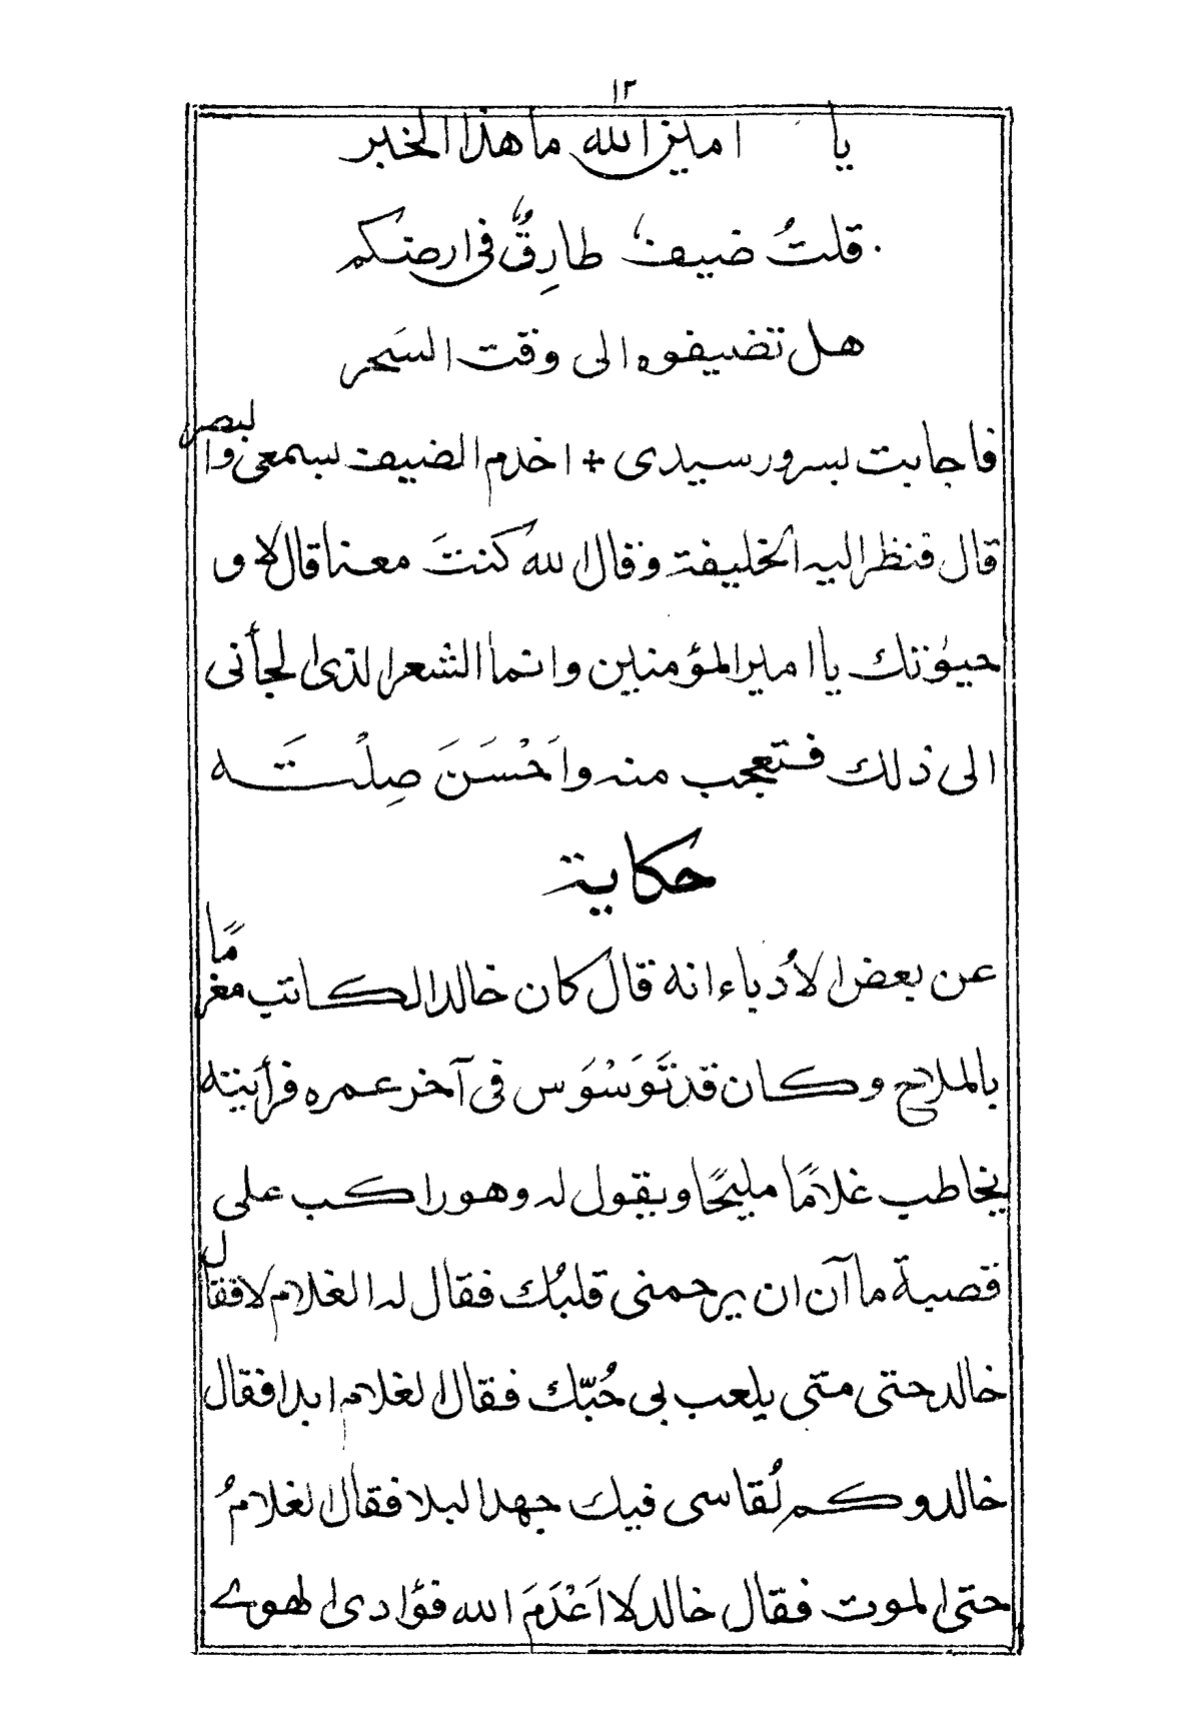 ١٢
يا امين الله ما هذا الخبر
قلتُ ضيف طارِقٌ فى ارضكم
هل تضيفوه الى وقت السَحر
فاجابت بسرور سيدى + اخدم الضيف بسمعى والبصر
قال فنظر اليه الخليفة وقال اللهُ كنتَ معنا قال لا و
حيوٰتك يا امير المؤمنين وانما الشعر الذى الجأنى
الى ذلك فتعجب منه واَحْسَنَ صِلْتَه
حكاية
عن بعض الأُدباء انه قال كان خالد الكاتب مغرمًا
بالملاح وكان قد تَوَسْوَس فى آخر عمره فرأيته
يخاطب غلامًا مليحًا ويقول له وهو راكب على
قصبة ما آن ان يرحمنى قلبُك فقال له الغلام لا فقال
خالد حتى متى يلعب بى حُبّك فقال الغلام ابدا فقال
خالد وكم لُقاسى فيك جهد البلا فقال الغلامُ
حتى الموت فقال خالد لا اَعْدَمَ الله فؤادى الهوے